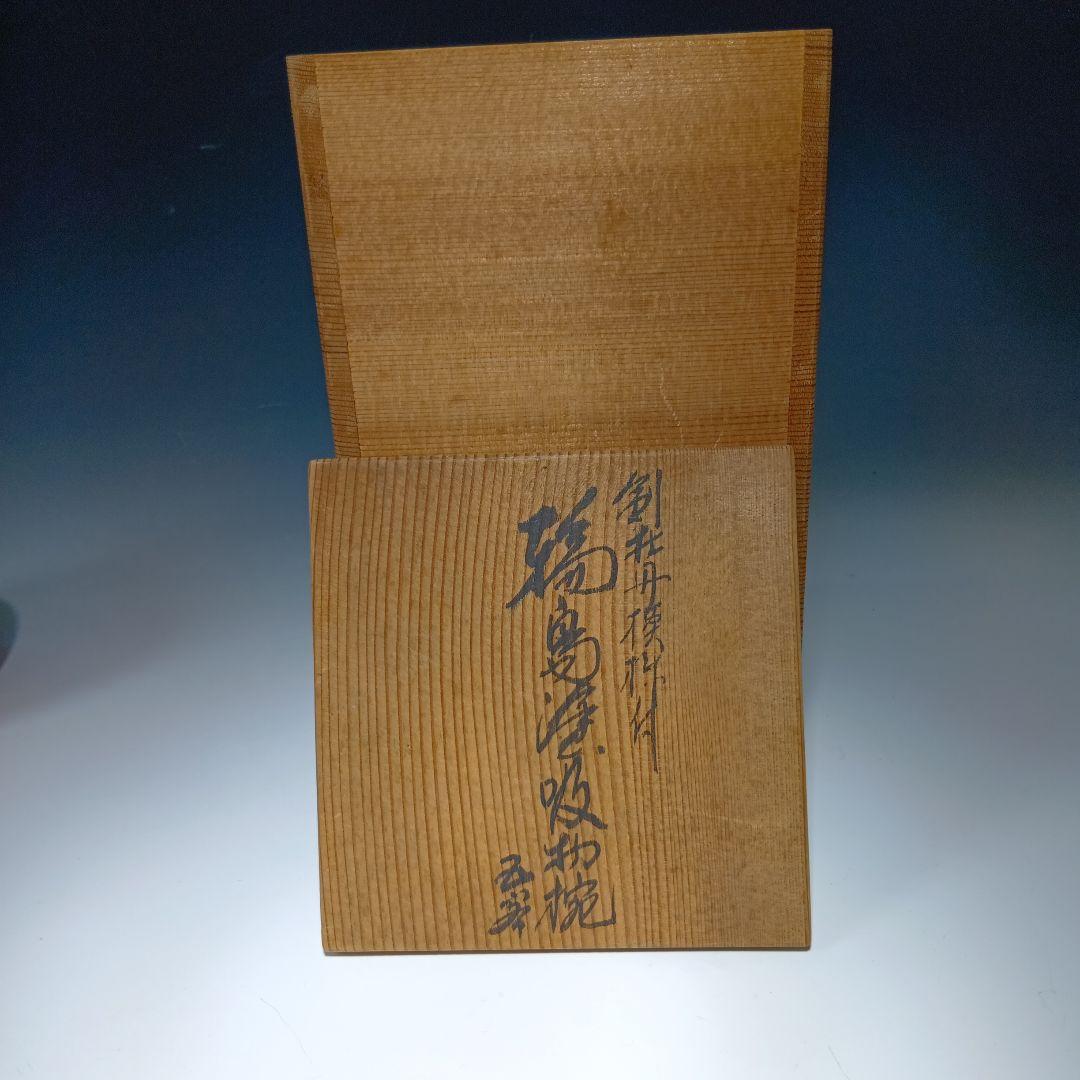 剣牡丹模様付
輪島塗吸物椀
五客